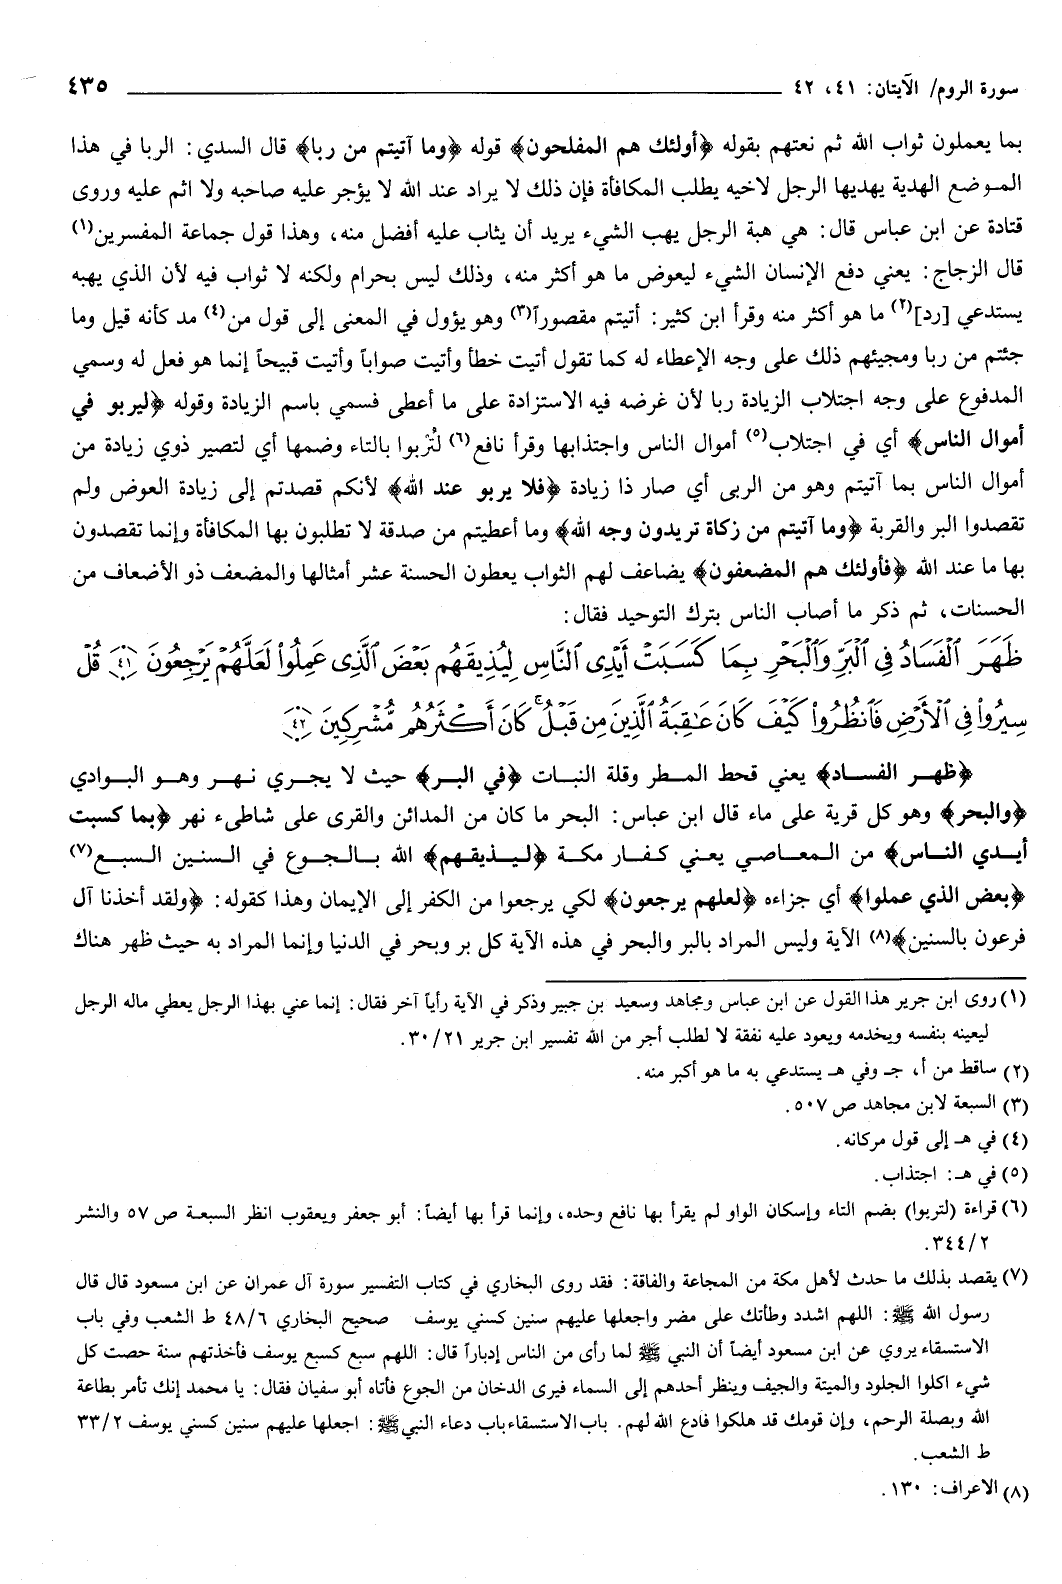 سورة الروم/ الآيتان: ٤١، ٤٢ ٤٣٥
بما يعملون ثواب الله ثم نعتهم بقوله ﴿أولئك هم المفلحون﴾ قوله ﴿وما آتيتم من ربا﴾ قال السدي: الربا في هذا
الموضع الهدية يهديها الرجل لاخيه يطلب المكافأة فإن ذلك لا يراد عند الله لا يؤجر عليه صاحبه ولا اثم عليه وروى
قتادة عن ابن عباس قال: هي هبة الرجل يهب الشيء يريد أن يثاب عليه أفضل منه، وهذا قول جماعة المفسرين(١)
قال الزجاج: يعني دفع الإنسان الشيء ليعوض ما هو أكثر منه، وذلك ليس بحرام ولكنه لا ثواب فيه لأن الذي يهبه
يستدعي [رد](٢) ما هو أكثر منه وقرأ ابن كثير: أتيتم مقصوراً(٣) وهو يؤول في المعنى إلى قول من(٤) مد كأنه قيل وما
جئتم من ربا ومجيئهم ذلك على وجه الإعطاء له كما تقول أتيت خطأ وأتيت صواباً وأتيت قبيحاً إنما هو فعل له وسمي
المدفوع على وجه اجتلاب الزيادة ربا لأن غرضه فيه الاستزادة على ما أعطى فسمي باسم الزيادة وقوله ﴿ليربو في
أموال الناس﴾ أي في اجتلاب(٥) أموال الناس واجتذابها وقرأ نافع(٦) لتُربوا بالتاء وضمها أي لتصير ذوي زيادة من
أموال الناس بما آتيتم وهو من الربى أي صار ذا زيادة ﴿فلا يربو عند الله﴾ لأنكم قصدتم إلى زيادة العوض ولم
تقصدوا البر والقربة ﴿وما آتيتم من زكاة تريدون وجه الله﴾ وما أعطيتم من صدقة لا تطلبون بها المكافأة وإنما تقصدون
بها ما عند الله ﴿فأولئك هم المضعفون﴾ يضاعف لهم الثواب يعطون الحسنة عشر أمثالها والمضعف ذو الأضعاف من
الحسنات، ثم ذكر ما أصاب الناس بترك التوحيد فقال:
ظَهَرَ ٱلْفَسَادُ فِي ٱلْبَرِّ وَٱلْبَحْرِ بِمَا كَسَبَتْ أَيْدِى ٱلنَّاسِ لِيُذِيقَهُم بَعْضَ ٱلَّذِى عَمِلُوا۟ لَعَلَّهُمْ يَرْجِعُونَ ﴿٤١﴾ قُلْ
سِيرُوا۟ فِى ٱلْأَرْضِ فَٱنظُرُوا۟ كَيْفَ كَانَ عَٰقِبَةُ ٱلَّذِينَ مِن قَبْلُ ۚ كَانَ أَكْثَرُهُم مُّشْرِكِينَ ﴿٤٢﴾
﴿ظهر الفساد﴾ يعني قحط المطر وقلة النبات ﴿في البر﴾ حيث لا يجري نهر وهو البوادي
﴿والبحر﴾ وهو كل قرية على ماء قال ابن عباس: البحر ما كان من المدائن والقرى على شاطىء نهر ﴿بما كسبت
أيدي الناس﴾ من المعاصي يعني كفار مكة ﴿ليذيقهم﴾ الله بالجوع في السنين السبع(٧)
﴿بعض الذي عملوا﴾ أي جزاءه ﴿لعلهم يرجعون﴾ لكي يرجعوا من الكفر إلى الإيمان وهذا كقوله: ﴿ولقد أخذنا آل
فرعون بالسنين﴾(٨) الآية وليس المراد بالبر والبحر في هذه الآية كل بر وبحر في الدنيا وإنما المراد به حيث ظهر هناك
(١) روى ابن جرير هذا القول عن ابن عباس ومجاهد وسعيد بن جبير وذكر في الآية رأياً آخر فقال: إنما عني بهذا الرجل يعطي ماله الرجل
ليعينه بنفسه ويخدمه ويعود عليه نفقة لا لطلب أجر من الله تفسير ابن جرير ٣٠/٢١.
(٢) ساقط من أ، جـ وفي هـ يستدعي به ما هو أكبر منه.
(٣) السبعة لابن مجاهد ص ٥٠٧.
(٤) في هـ إلى قول مركانه.
(٥) في هـ: اجتذاب.
(٦) قراءة (لتربوا) بضم التاء وإسكان الواو لم يقرأ بها نافع وحده، وإنما قرأ بها أيضاً: أبو جعفر ويعقوب انظر السبعة ص ٥٧ والنشر
٣٤٤/٢.
(٧) يقصد بذلك ما حدث لأهل مكة من المجاعة والفاقة: فقد روى البخاري في كتاب التفسير سورة آل عمران عن ابن مسعود قال قال
رسول الله ﷺ: اللهم اشدد وطأتك على مضر واجعلها عليهم سنين كسني يوسف صحيح البخاري ٤٨/٦ ط الشعب وفي باب
الاستسقاء يروي عن ابن مسعود أيضاً أن النبي ﷺ لما رأى من الناس إدباراً قال: اللهم سبع كسبع يوسف فأخذتهم سنة حصت كل
شيء اكلوا الجلود والميتة والجيف وينظر أحدهم إلى السماء فيرى الدخان من الجوع فأتاه أبو سفيان فقال: يا محمد إنك تأمر بطاعة
الله وبصلة الرحم، وإن قومك قد هلكوا فادع الله لهم. باب الاستسقاء باب دعاء النبي ﷺ: اجعلها عليهم سنين كسني يوسف ٣٣/٢
ط الشعب.
(٨) الاعراف: ١٣٠.